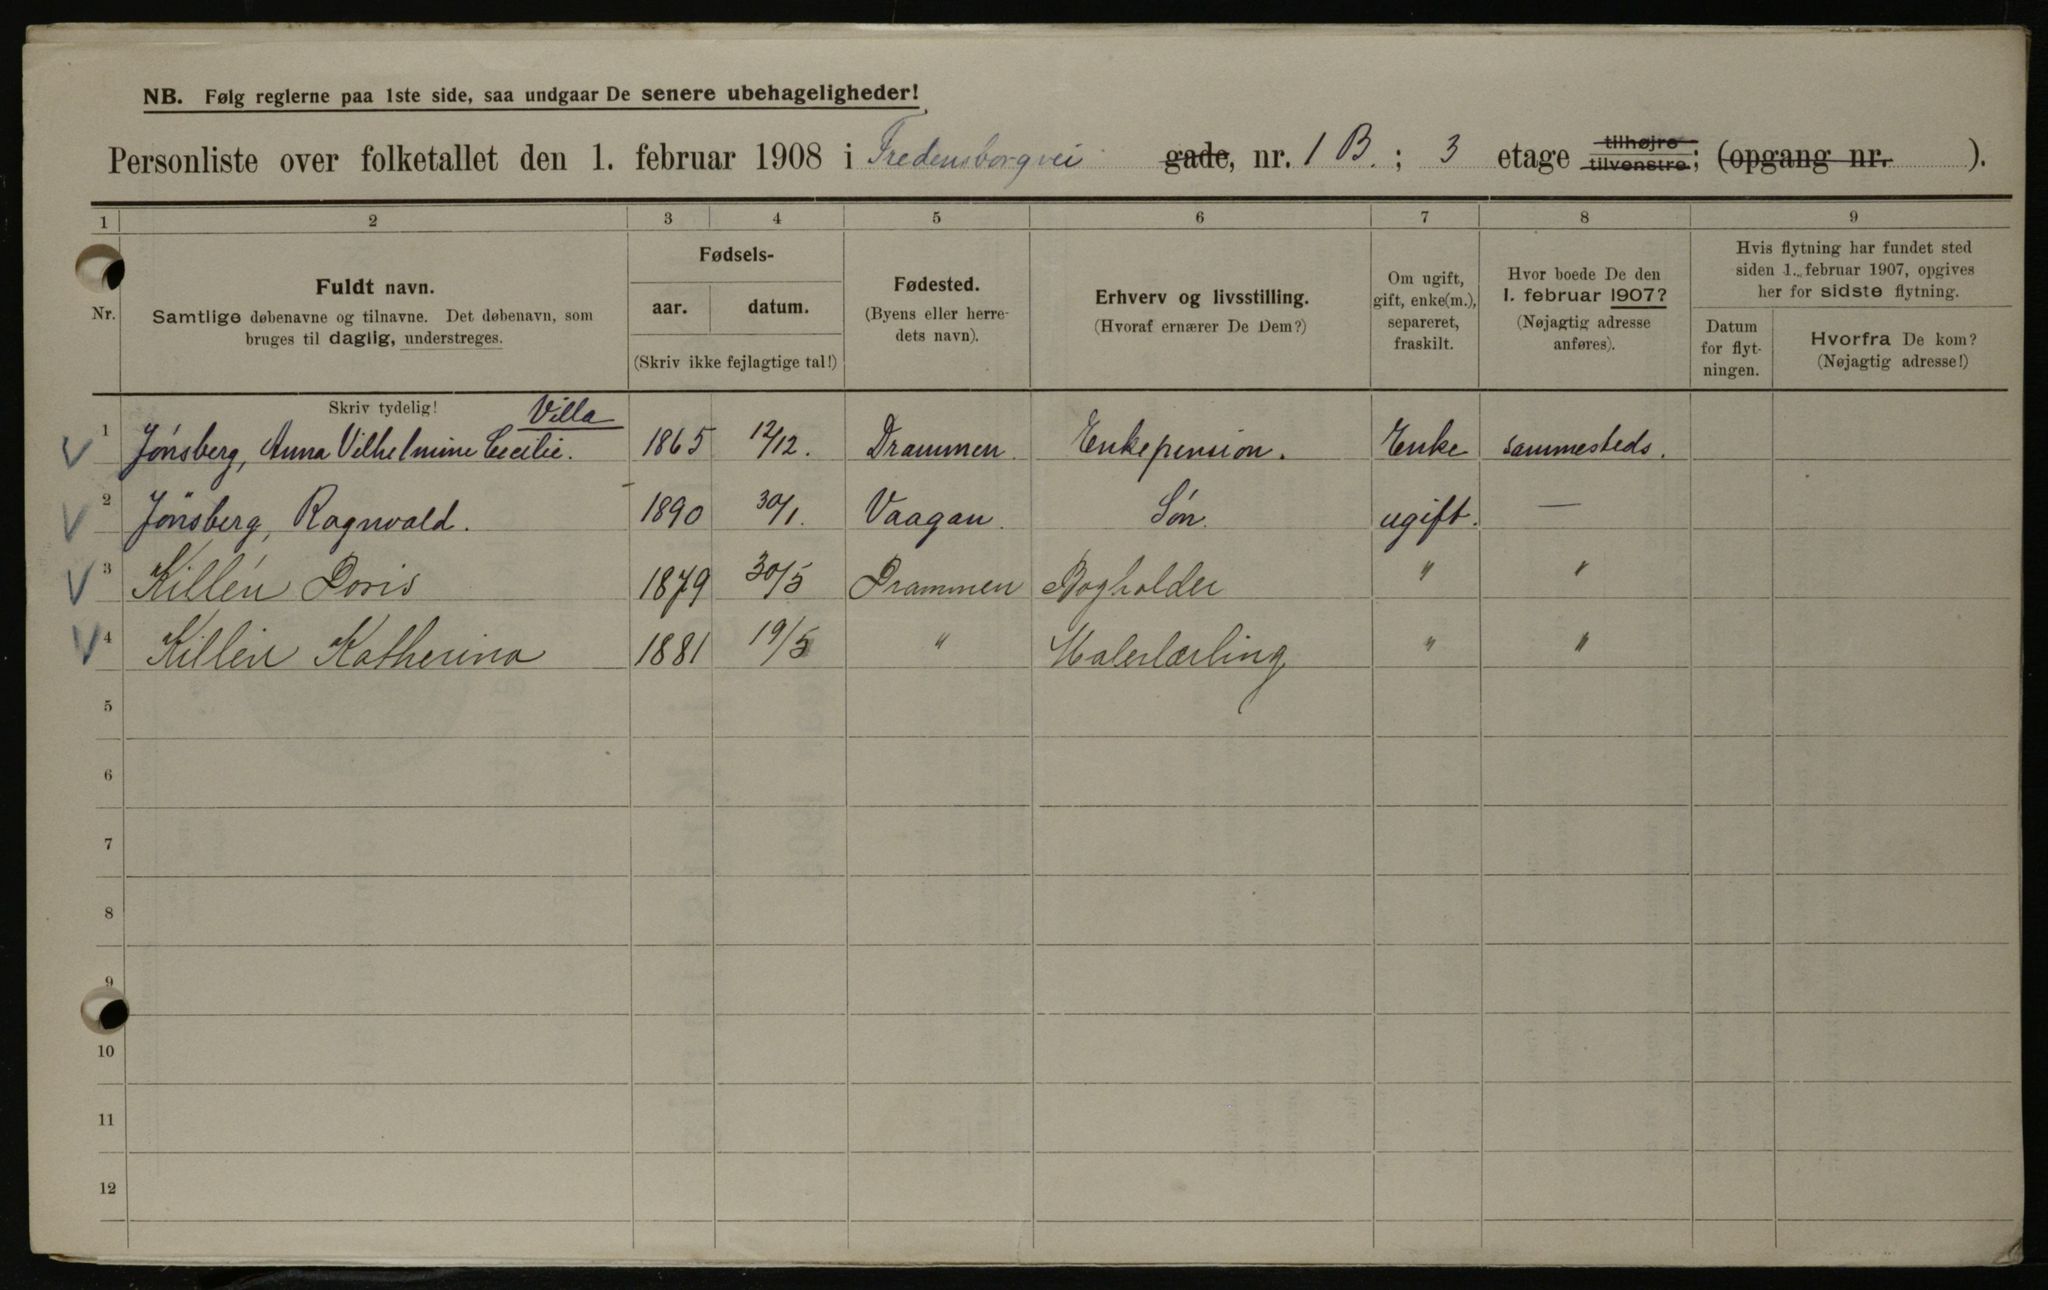 NB. Følg reglerne paa 1ste side, saa undgaar De senere ubehageligheder!
Personliste over folketallet den 1. februar 1908 i Fredensborgvei gade, nr. 1 B. ; 3 etage tilhøjre tilvenstre; (opgang nr. ).
1 2 3 4 5 6 7 8 9
Nr.
Fuldt navn.
Samtlige døbenavne og tilnavne. Det døbenavn, som
bruges til daglig, understreges.
Fødsels-
aar. datum.
(Skriv ikke fejlagtige tal!)
Fødested.
(Byens eller herre-
dets navn).
Erhverv og livsstilling.
(Hvoraf ernærer De Dem?)
Om ugift,
gift, enke(m.),
separeret,
fraskilt.
Hvor boede De den
1. februar 1907?
(Nøjagtig adresse
anføres).
Hvis flytning har fundet sted
siden 1. februar 1907, opgives
her for sidste flytning.
Datum
for flyt-
ningen.
Hvorfra De kom?
(Nøjagtig adresse!)
Skriv tydelig! Villa
1 Jónsberg, Anna Vilhelmine Cecilie. 1865 12/12. Drammen. Enkepension. Enke sammesteds.
2 Jönsberg, Ragnvald. 1890 30/1. Vaagan. Són. ugift. —
3 Killén Doris 1879 30/5 Drammen Bogholder " "
4 Killén Katherina 1881 19/5 " Malerlærling " "
5
6
7
8
9
10
11
12